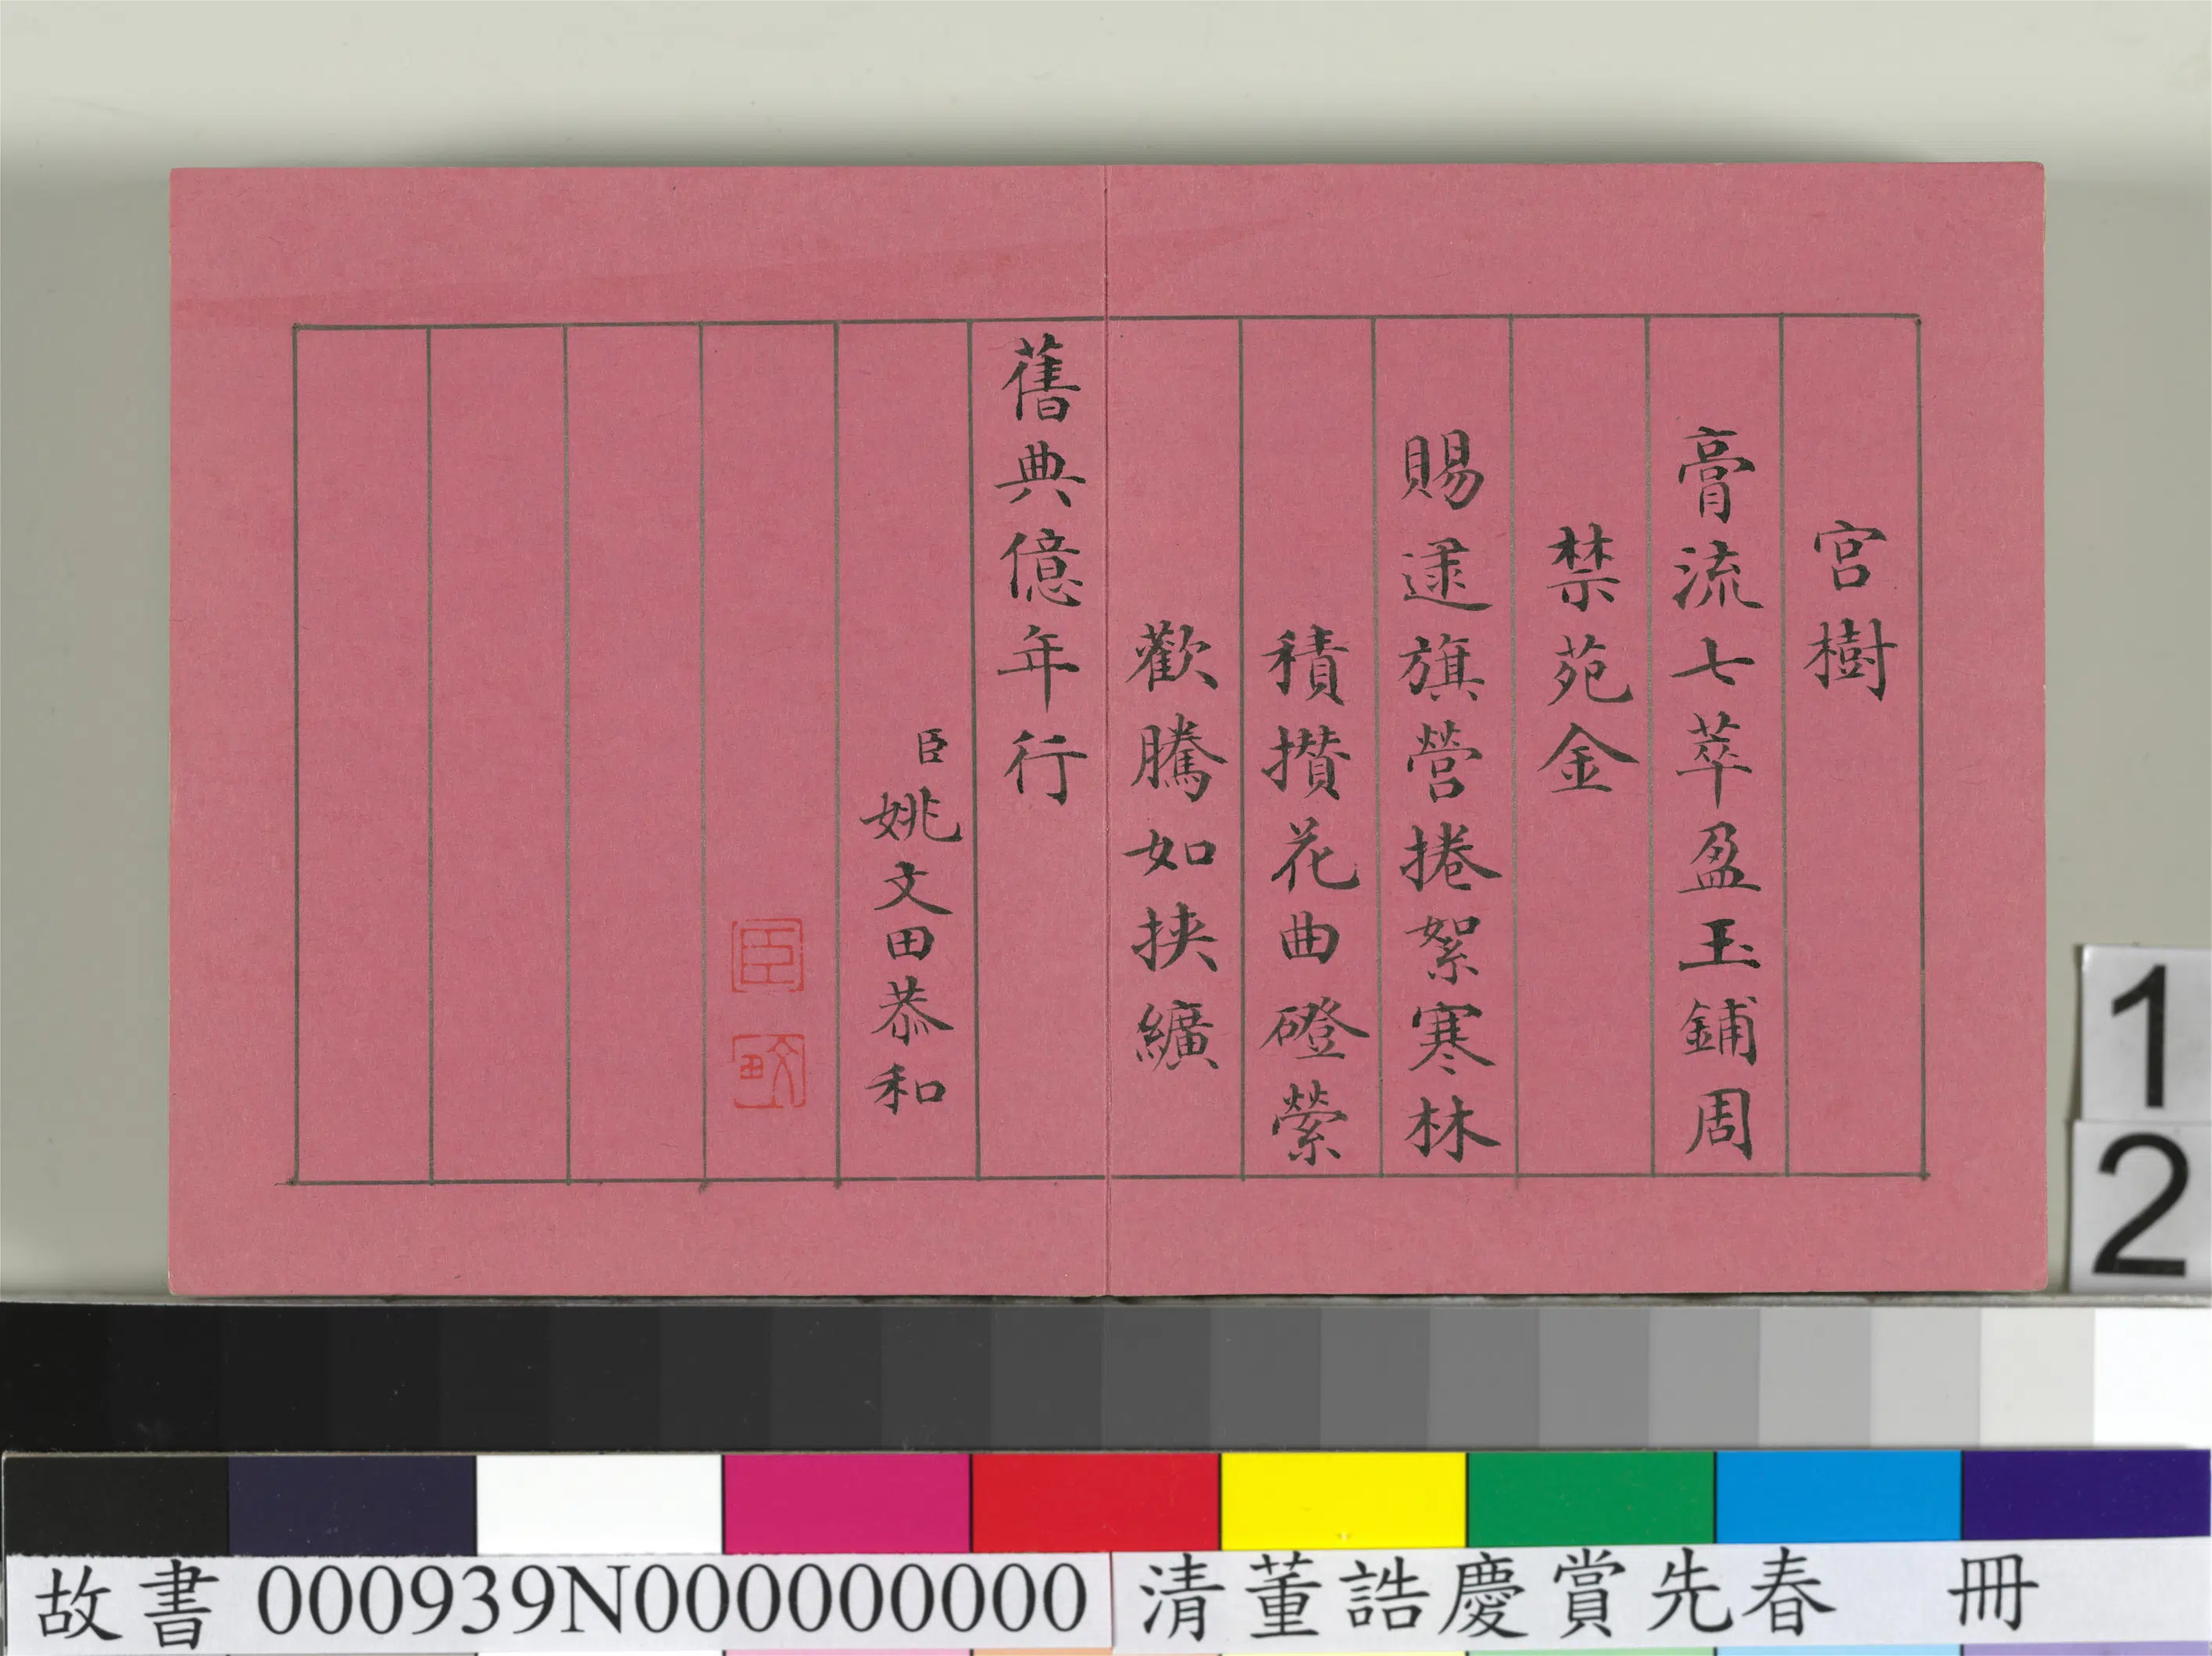 宮樹
膏流七萃盈玉鋪周
禁苑金
賜逮旗營捲絮寒林
積攢花曲磴縈
歡騰如挾纊
舊典億年行
臣姚文田恭和
臣
文田
1
2
故書 000939N000000000
清董誥慶賞先春 冊